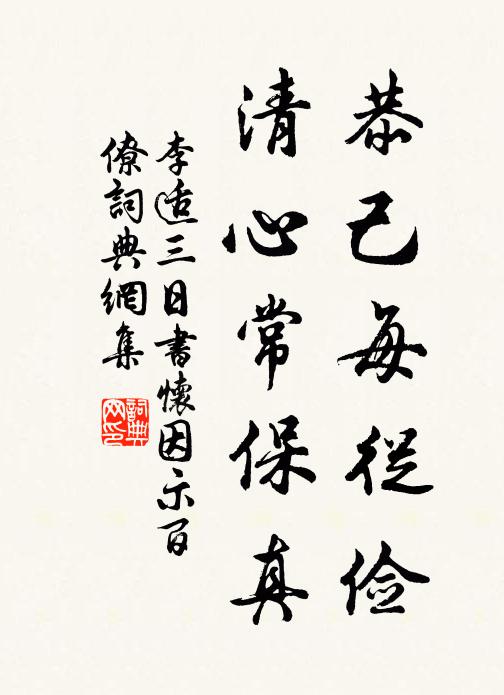 恭己每從儉
清心常保真
李适三日書懷因示百
僚詞典網集
詞典
网印